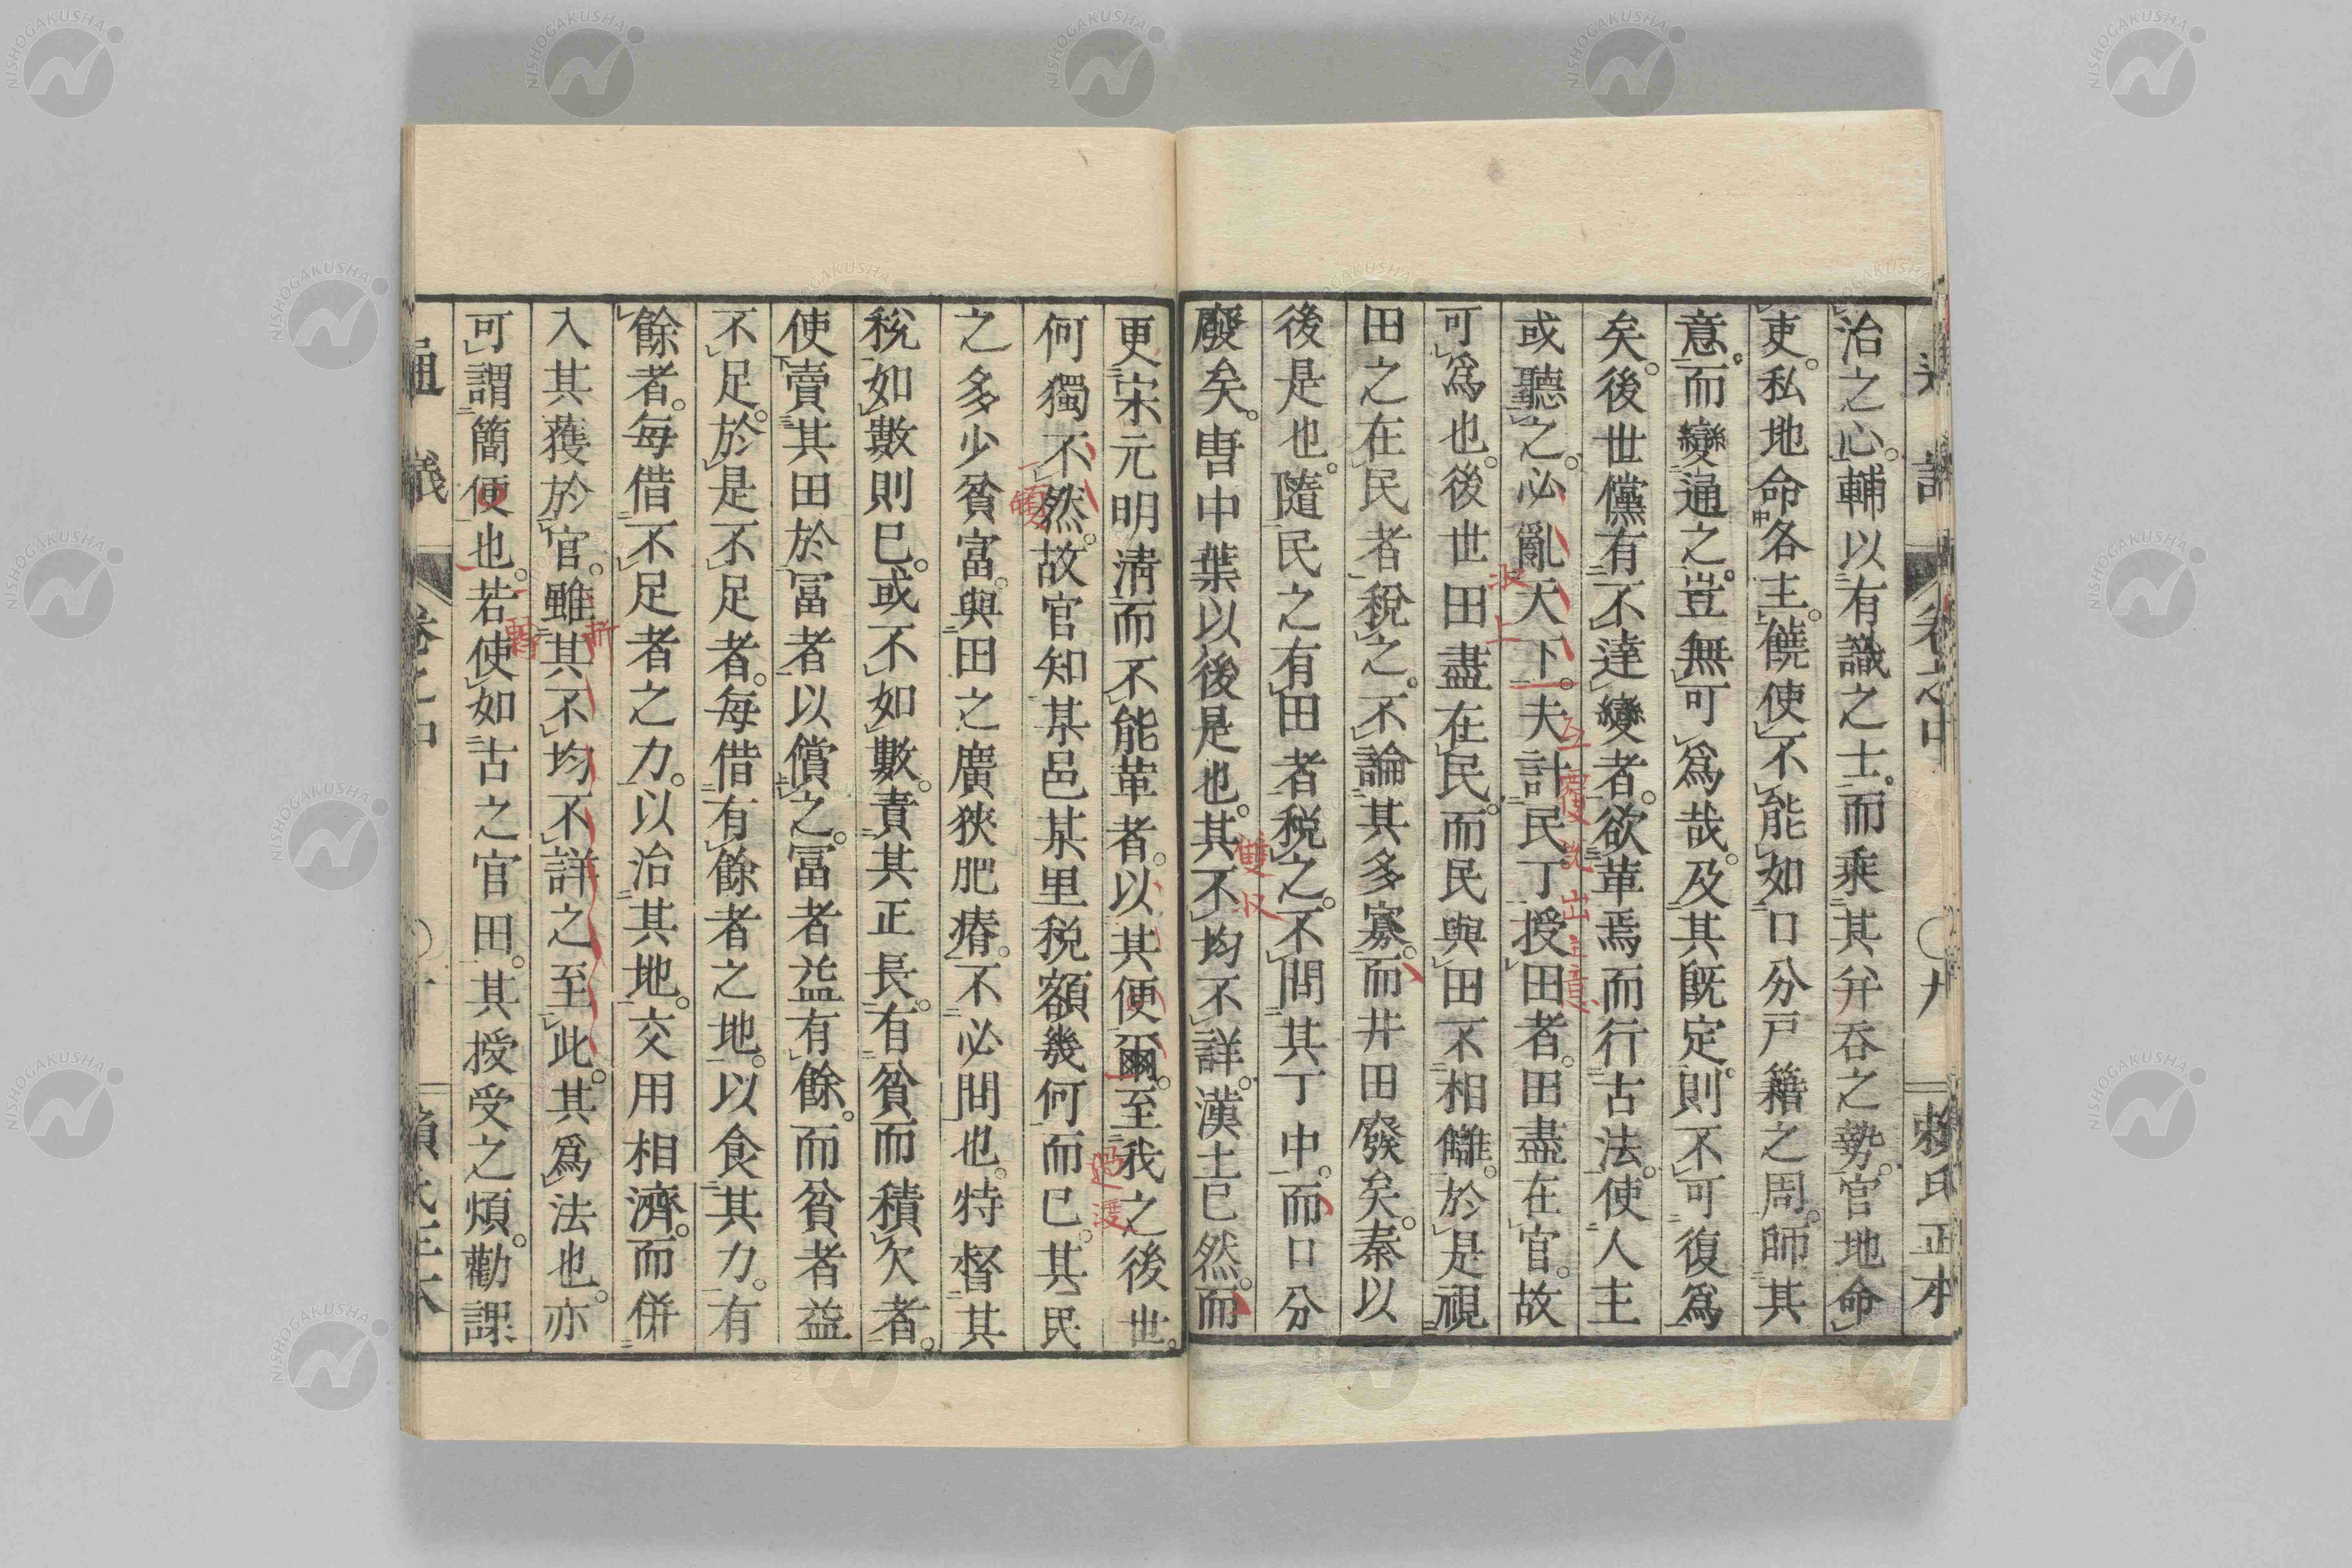 通議 卷之中 ○九 賴氏正本
治之心。輔以有識之士。而乘其弁吞之勢。官地命
吏。私地命各主。饒使不能如口分戸籍之周。師其
意。而變通之。豈無可為哉。及其既定。則不可復為
矣。後世儻有不達變者。欲革焉而行古法。使人主
或聽之。必亂天下。夫計民丁授田者。田盡在官。故
可為也。後世田盡在民。而民與田不相離。於是視
田之在民者稅之。不論其多寡。而井田廢矣。秦以
後是也。隨民之有田者稅之。不問其丁中。而口分
廢矣。唐中葉以後是也。其不均不詳。漢土已然。而
收上
互覆說出主意
雙收
更宋元明清而不能革者。以其便爾。至我之後世。
何獨不然。故官知某邑某里稅額幾何而已。其民
之多少貧富。與田之廣狹肥瘠。不必問也。特督其
稅如數則已。或不如數。責其正長。有貧而積欠者。
使賣其田於冨者以償之。冨者益有餘。而貧者益
不足。於是不足者。每借有餘者之地。以食其力。有
餘者。每借不足者之力。以治其地。交用相濟。而併
入其獲於官。雖其不均不詳之至此。其為法也。亦
可謂簡便也。若使如古之官田。其授受之煩。勸課
過渡
頓
斬
轉
通議 卷之中 ○十 賴氏正本
NISHOGAKUSHA
NISHOGAKUSHA
NISHOGAKUSHA
NISHOGAKUSHA
NISHOGAKUSHA
NISHOGAKUSHA
NISHOGAKUSHA
NISHOGAKUSHA
NISHOGAKUSHA
NISHOGAKUSHA
NISHOGAKUSHA
NISHOGAKUSHA
NISHOGAKUSHA